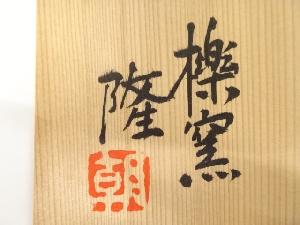 櫟窯
隆